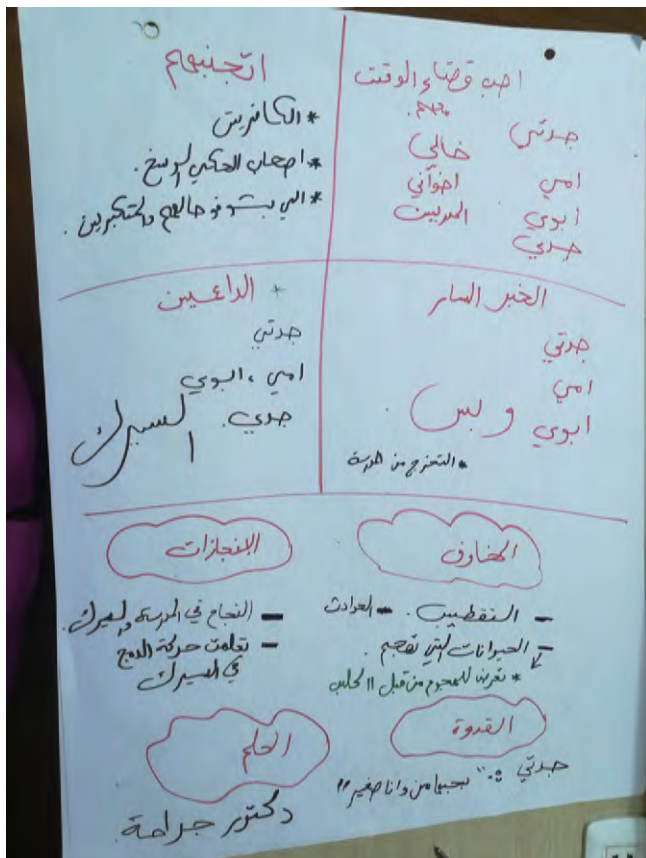 احب قضاء الوقت
معهم.
جدتي خالي
امي اخواني
ابوي المدربين
جدي
اتجنبهم
* الكافريش
* اصحاب الحكي الوسخ.
* الي بشوفو حالهم والمتكبرين.
الخبر السار
جدتي
امي
ابوي
وبس.
* التخرج من المدرسة
* الداعمين
جدتي
امي، ابوي
جدي.
السيرك
المخاوف
- التقطيب. - الحوادث
- الحيوانات التي تهجم.
* تعرضنا للهجوم من قبل الكلب
الإنجازات
- النجاح في المدرسة والسيرك.
- تعلمت حركة الدمج
في السيرك
القدوة
جدتي : "بحبها من وانا صغير"
الحلم
دكتور جراحة.